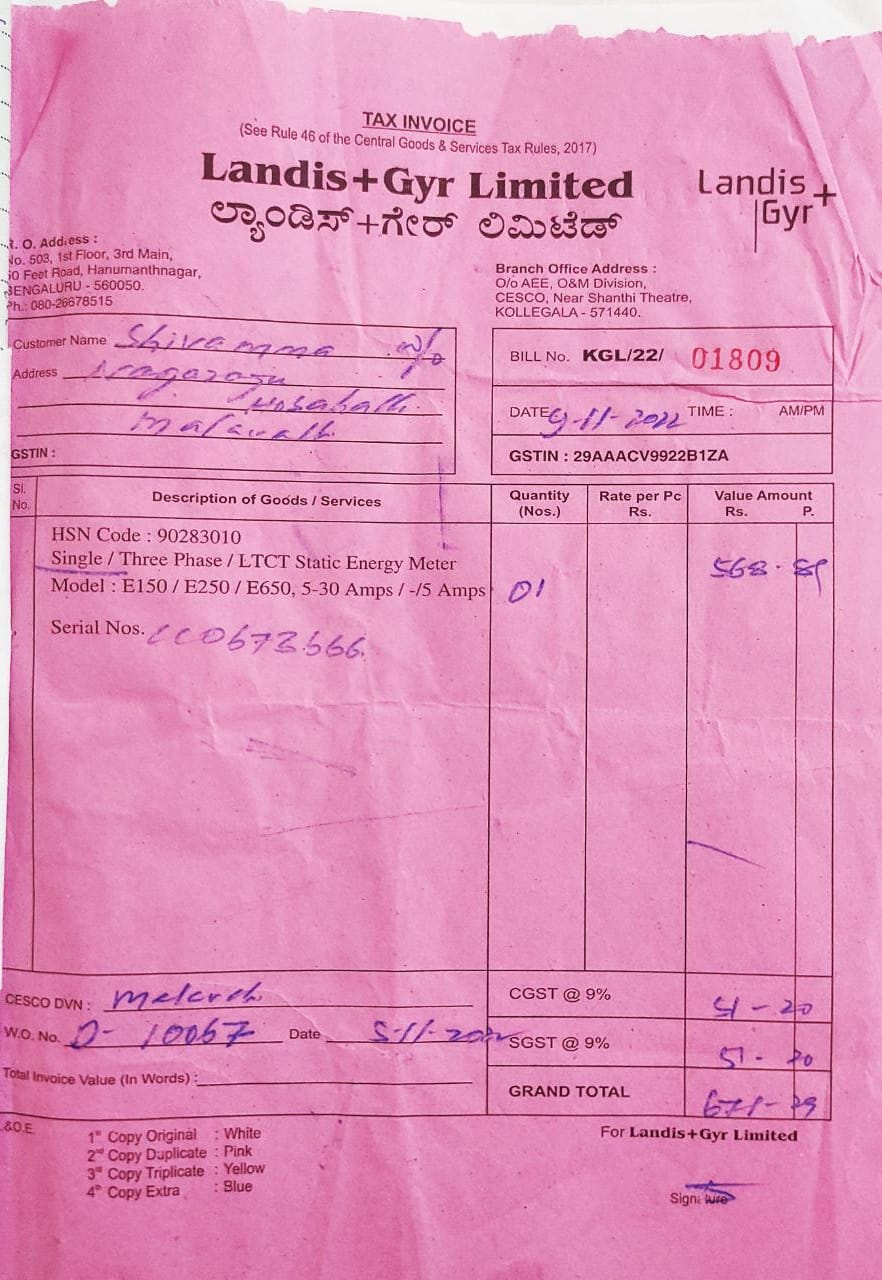 TAX INVOICE
(See Rule 46 of the Central Goods & Services Tax Rules, 2017)
Landis+Gyr Limited
ಲ್ಯಾಂಡಿಸ್+ಗೇರ್ ಲಿಮಿಟೆಡ್
Landis
Gyr+
R. O. Address :
No. 503, 1st Floor, 3rd Main,
0 Feet Road, Hanumanthnagar,
BENGALURU - 560050.
Ph.: 080-26678515
Branch Office Address :
O/o AEE, O&M Division,
CESCO, Near Shanthi Theatre,
KOLLEGALA - 571440.
Customer Name Shivamma
Address
GSTIN :
BILL No. KGL/22/ 01809
DATE 9-11-2022 TIME : AM/PM
GSTIN : 29AAACV9922B1ZA
Sl. No. Description of Goods / Services Quantity (Nos.) Rate per Pc Rs. Value Amount Rs. P.
HSN Code : 90283010
Single / Three Phase / LTCT Static Energy Meter 568.89
Model : E150 / E250 / E650, 5-30 Amps / -/5 Amps 01
Serial Nos.
CESCO DVN :
W.O. No. D- 10067 Date 5-11-2022
Total Invoice Value (In Words) :
CGST @ 9% 51-20
SGST @ 9% 51-20
GRAND TOTAL 671-29
&O.E.
1st Copy Original : White
2nd Copy Duplicate : Pink
3rd Copy Triplicate : Yellow
4th Copy Extra : Blue
For Landis+Gyr Limited
Signature